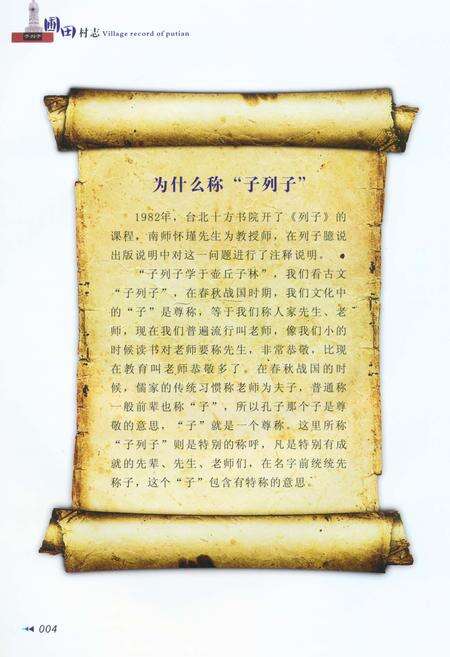 圃田村志 Village record of putian
为什么称“子列子”
1982年，台北十方书院开了《列子》的
课程，南师怀瑾先生为教授师，在列子臆说
出版说明中对这一问题进行了注释说明。
“子列子学于壶丘子林”，我们看古文
“子列子”，在春秋战国时期，我们文化中
的“子”是尊称，等于我们称人家先生、老
师，现在我们普遍流行叫老师，像我们小的
时候读书对老师要称先生，非常恭敬，比现
在教育叫老师恭敬多了。在春秋战国的时
候，儒家的传统习惯称老师为夫子，普通称
一般前辈也称“子”，所以孔子那个子是尊
敬的意思，“子”就是一个尊称。这里所称
“子列子”则是特别的称呼，凡是特别有成
就的先辈、先生、老师们，在名字前统统先
称子，这个“子”包含有特称的意思。
004